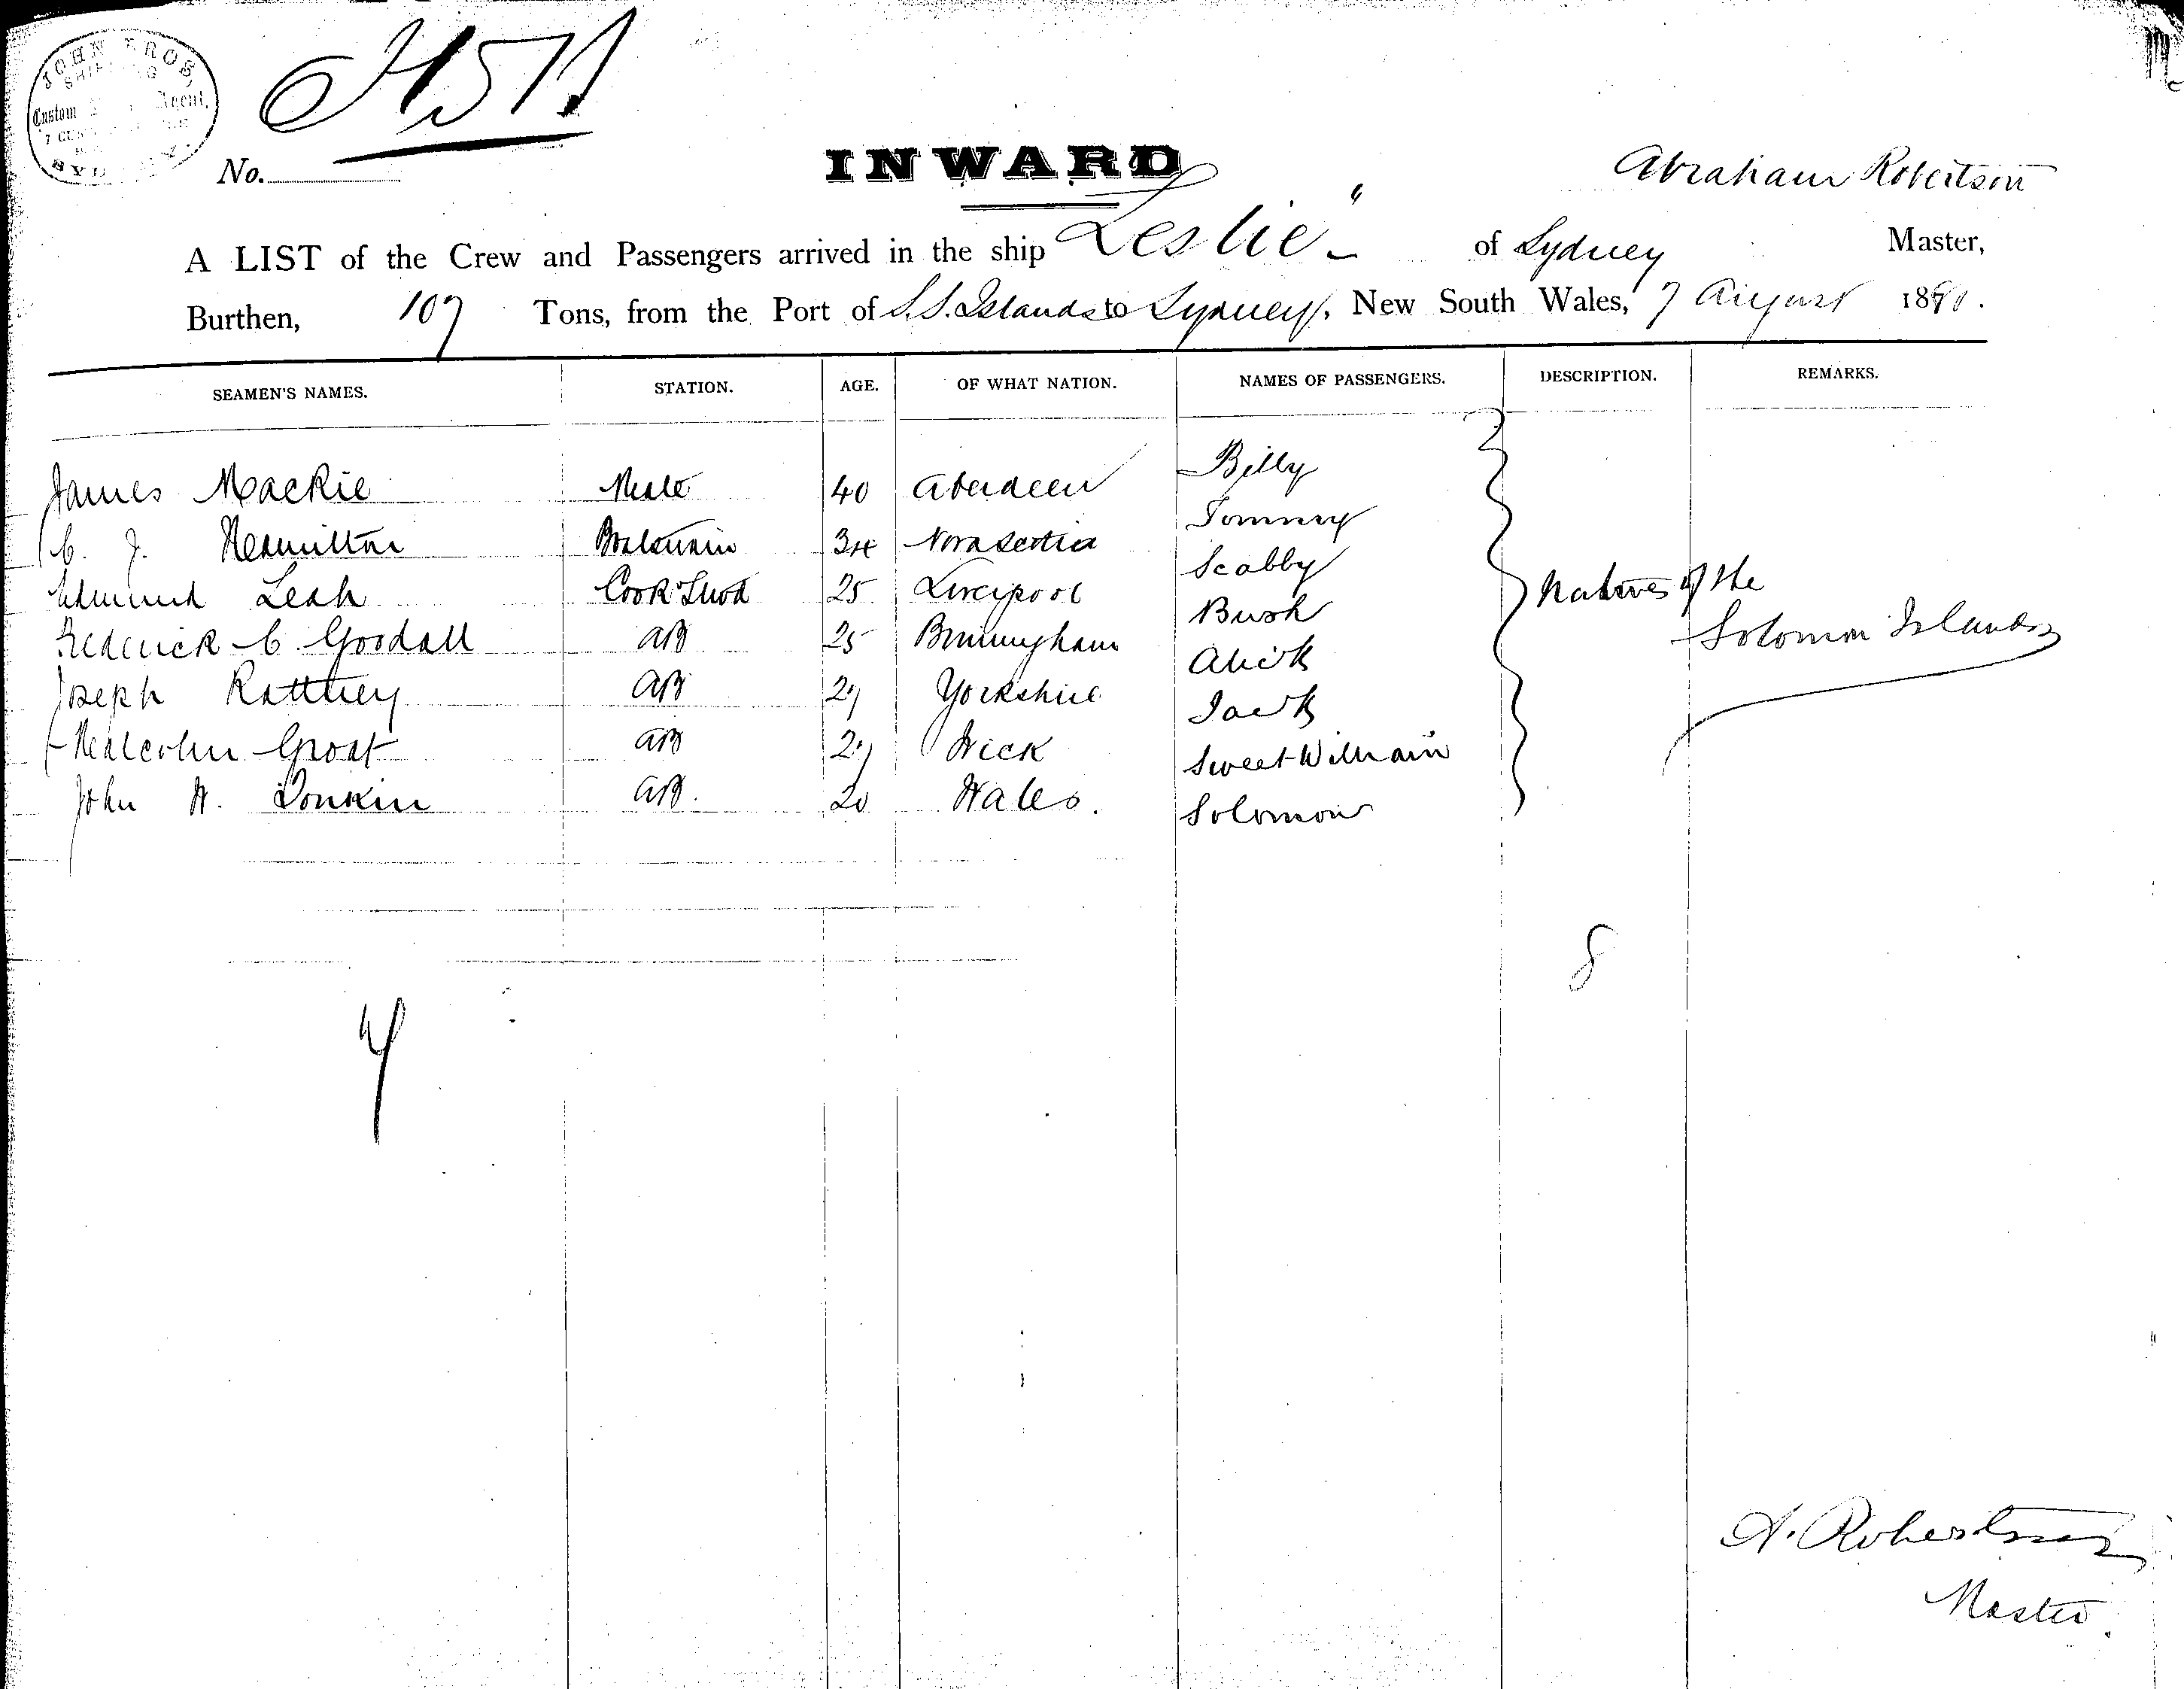 JOHN BROS,
SHIPPING
Custom Agent,
SYDNEY.
No.
INWARD
Abraham Robertson
A LIST of the Crew and Passengers arrived in the ship Leslie" of Sydney Master,
Burthen, 107 Tons, from the Port of S.S. Islands to Sydney, New South Wales, 7 August 18
SEAMEN'S NAMES. STATION. AGE. OF WHAT NATION. NAMES OF PASSENGERS. DESCRIPTION. REMARKS.
James Mackie Mate 40 Aberdeen Billy
C. J. Hamilton Boatswain 34 Nova Scotia Tommy
Edmund Leah Cook & Stwd 25 Liverpool Scabby
Frederick C. Goodall AB 25 Birmingham Bush
Joseph AB 27 Yorkshire Alick
Malcolm Groat AB 27 Wick Jack
John W. Donkin AB. 20 Wales. Sweet William
Solomon
Natives of the
Solomon Islands
8
7
A. Robertson
Master.